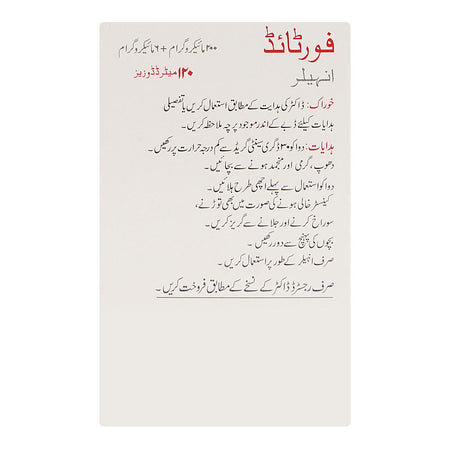 فورٹائڈ
۲۰۰ مائیکروگرام + ۶ مائیکروگرام
انہیلر
۱۲۰ میٹرڈ ڈوزیز
خوراک: ڈاکٹر کی ہدایت کے مطابق استعمال کریں یا تفصیلی
ہدایات کیلئے ڈبے کے اندر موجود پرچہ ملاحظہ کریں۔
ہدایات: دوا کو ۳۰ ڈگری سینٹی گریڈ سے کم درجہ حرارت پر رکھیں۔
دھوپ، گرمی اور منجمد ہونے سے بچائیں۔
دوا کو استعمال سے پہلے اچھی طرح ہلائیں۔
کینسٹر خالی ہونے کی صورت میں بھی توڑنے،
سوراخ کرنے اور جلانے سے گریز کریں۔
بچوں کی پہنچ سے دور رکھیں۔
صرف انہیلر کے طور پر استعمال کریں۔
صرف رجسٹرڈ ڈاکٹر کے نسخے کے مطابق فروخت کریں۔